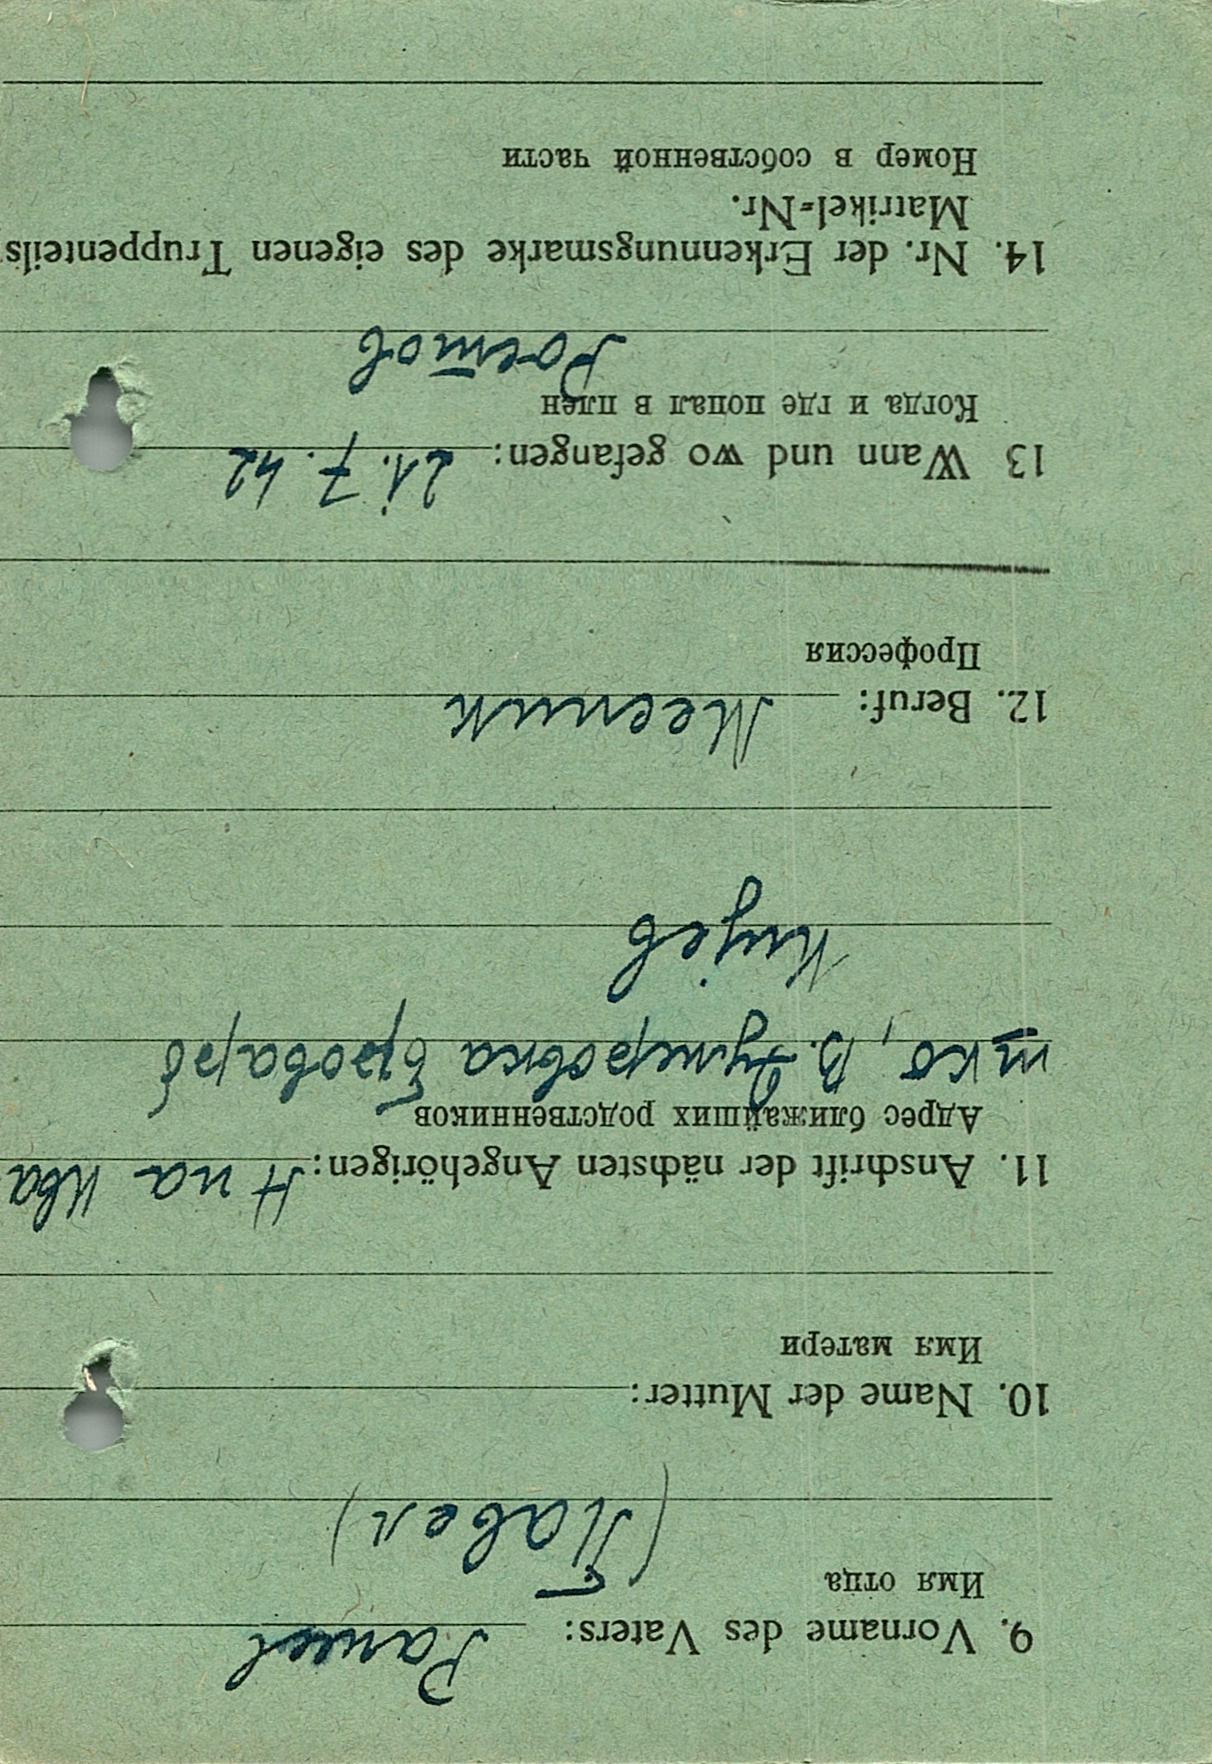 9. Vorname des Vaters: Pawel
Имя отца
(Павел)
10. Name der Mutter:
Имя матери
11. Anschrift der nächsten Angehörigen: Н па Ква
Адрес ближайших родственников
тко, В. Думеровка Бровары
Кијев
12. Beruf: Месник
Профессия
13 Wann und wo gefangen: 21. 7. 42
Когда и где попал в плен
Ростов
14. Nr. der Erkennungsmarke des eigenen Truppenteils
Matrikel-Nr.
Номер в собственной части